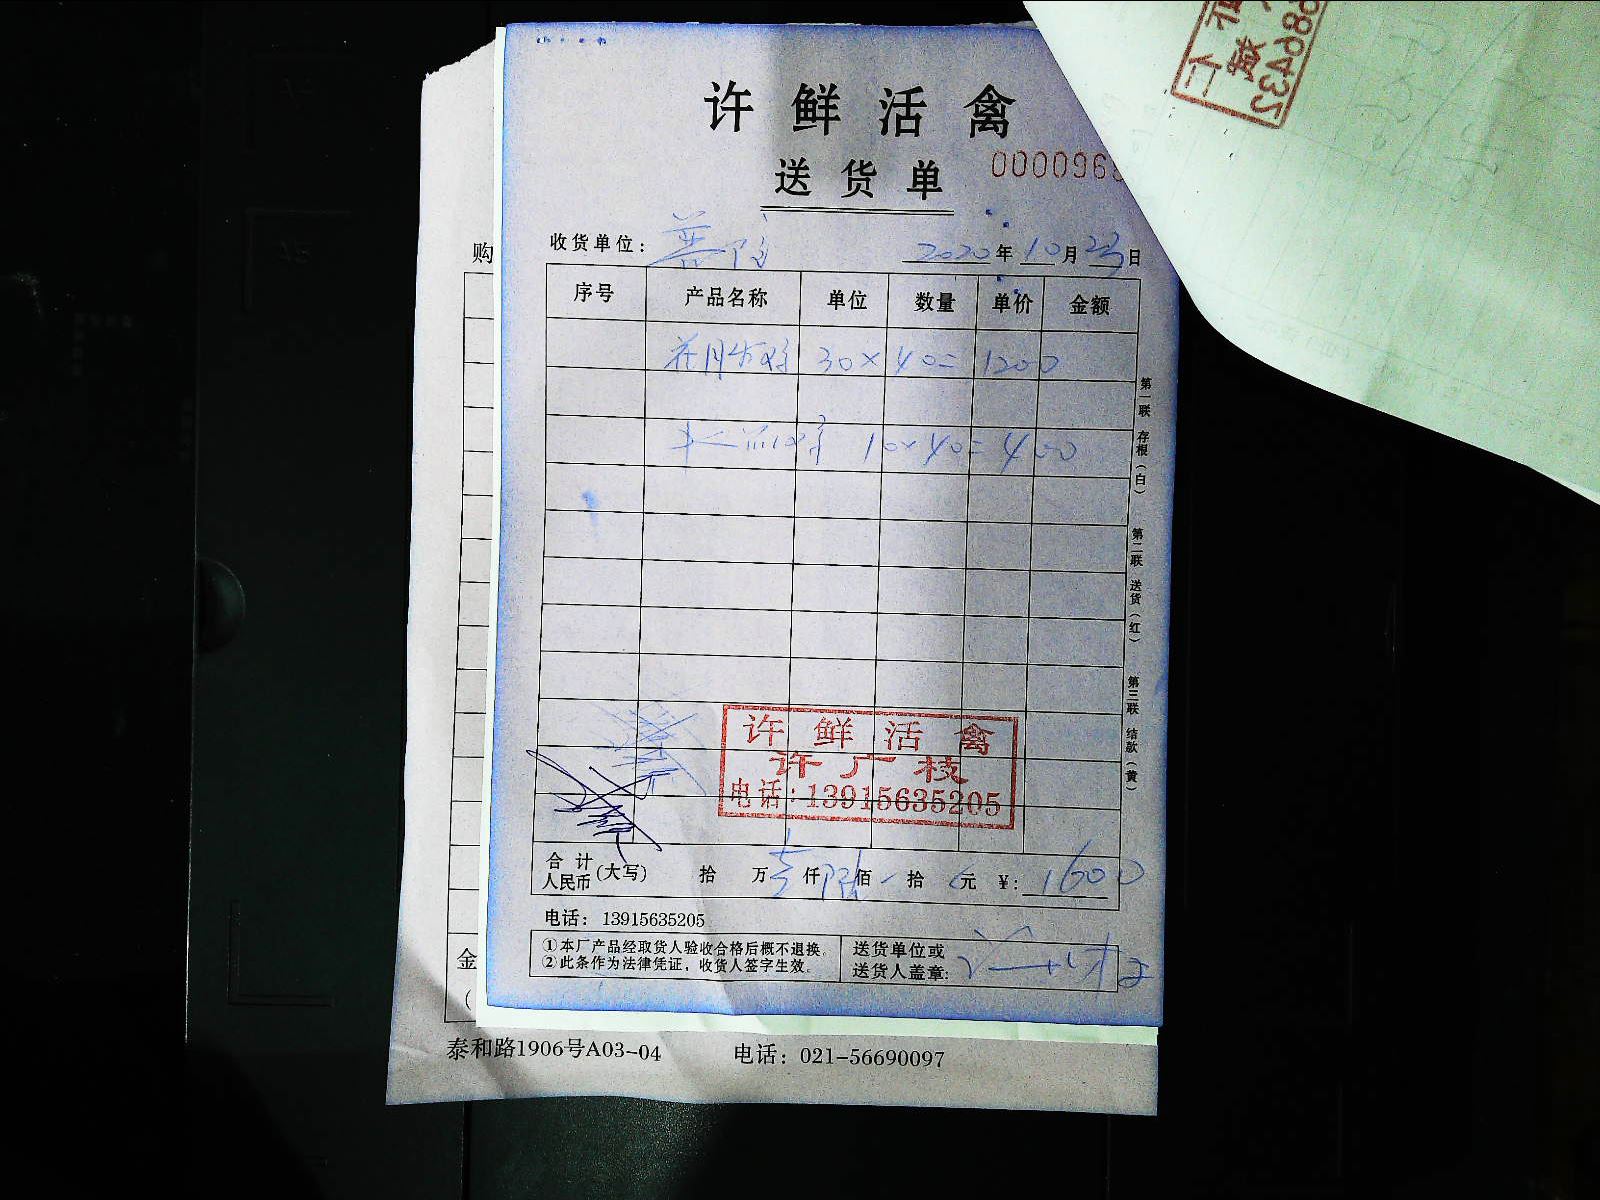 许鲜活禽
送货单
000096
收货单位：
2020年10月23日
购
序号 产品名称 单位 数量 单价 金额
30×40=1200
10×40=400
第一联 存根（白）
第二联 送货（红）
第三联 结款（黄）
许鲜活禽
许广枝
电话：13915635205
合计人民币(大写) 拾 万壹仟陆佰 拾 元 ¥：1600
电话：13915635205
①本厂产品经取货人验收合格后概不退换。
②此条作为法律凭证，收货人签字生效。
送货单位或
送货人盖章：
金
（
泰和路1906号A03-04 电话：021-56690097